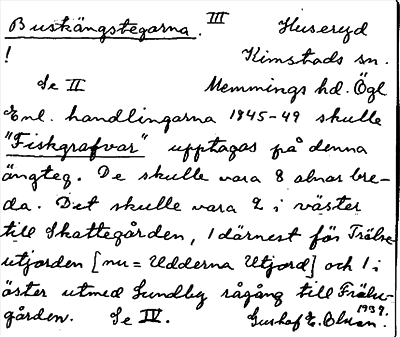 Buskängstegarna. III Huseryd
! Kimstads sn.
Se II Memmings hd. Ögl
Enl. handlingarna 1845-49 skulle
"Fiskgrafvar" upptagas på denna
ängteg. De skulle vara 8 alnar bre-
da. Det skulle vara 2 i väster
till Skattegården, 1 därnest för Frälse
utjorden [nu = Udderna Utjord] och 1 i
öster utmed Lundby rågång till Frälse-
gården. Se IV. Gustaf E. Olsson.
1939.